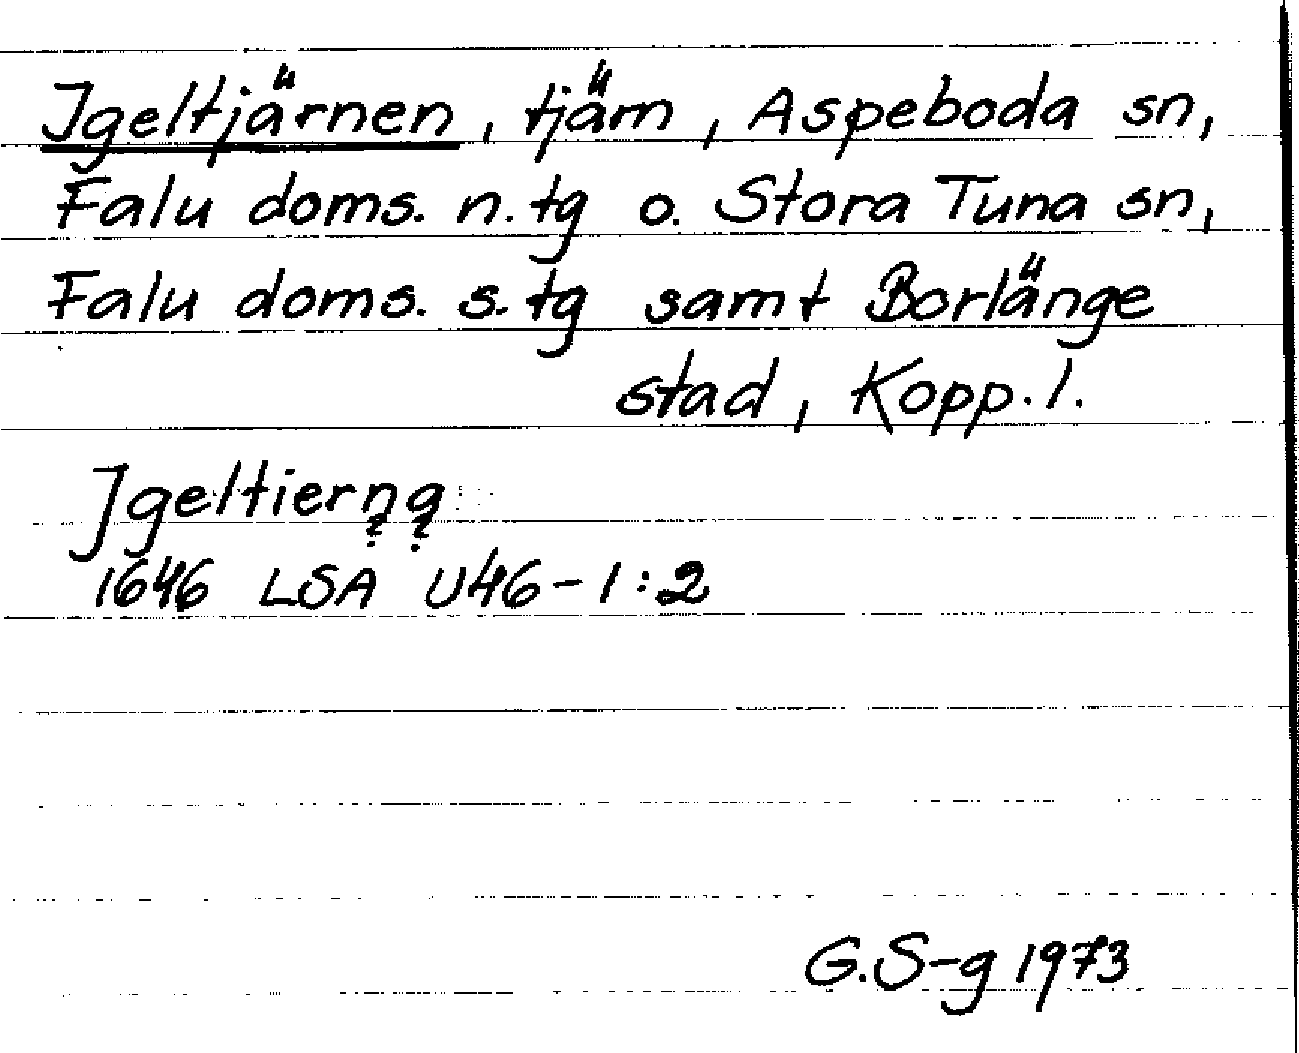 Igeltjärnen, tjärn, Aspeboda sn,
Falu doms. n. tg o. Stora Tuna sn,
Falu doms. s. tg samt Borlänge
stad, Kopp. l.
Igeltierna
1646 LSA U46-1:2
G.S-g 1973